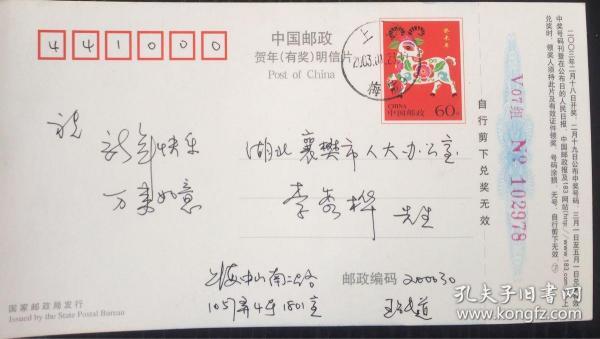 441000
中国邮政
贺年(有奖)明信片
Post of China
上海
2003.01.23
癸未年
CHINA
中国邮政 60分
祝
新年快乐
万事如意
湖北襄樊市人大办公室
李秀桦 先生
上海中山南二路
1057弄4号1801室
邮政编码 200030
国家邮政局发行
Issued by the State Postal Bureau
自行剪下兑奖无效
V07组 No 102978
二〇〇三年二月十八日开奖,二月十九日公布中奖号码,三月一日至五月一日
中奖号码刊登在公布日的人民日报、中国邮政报及183网站(http://www.183.com.cn)上
兑奖时,领奖人须持此片及有效证件领奖,号码涂损、无号、自行剪下无效。
孔夫子旧书网